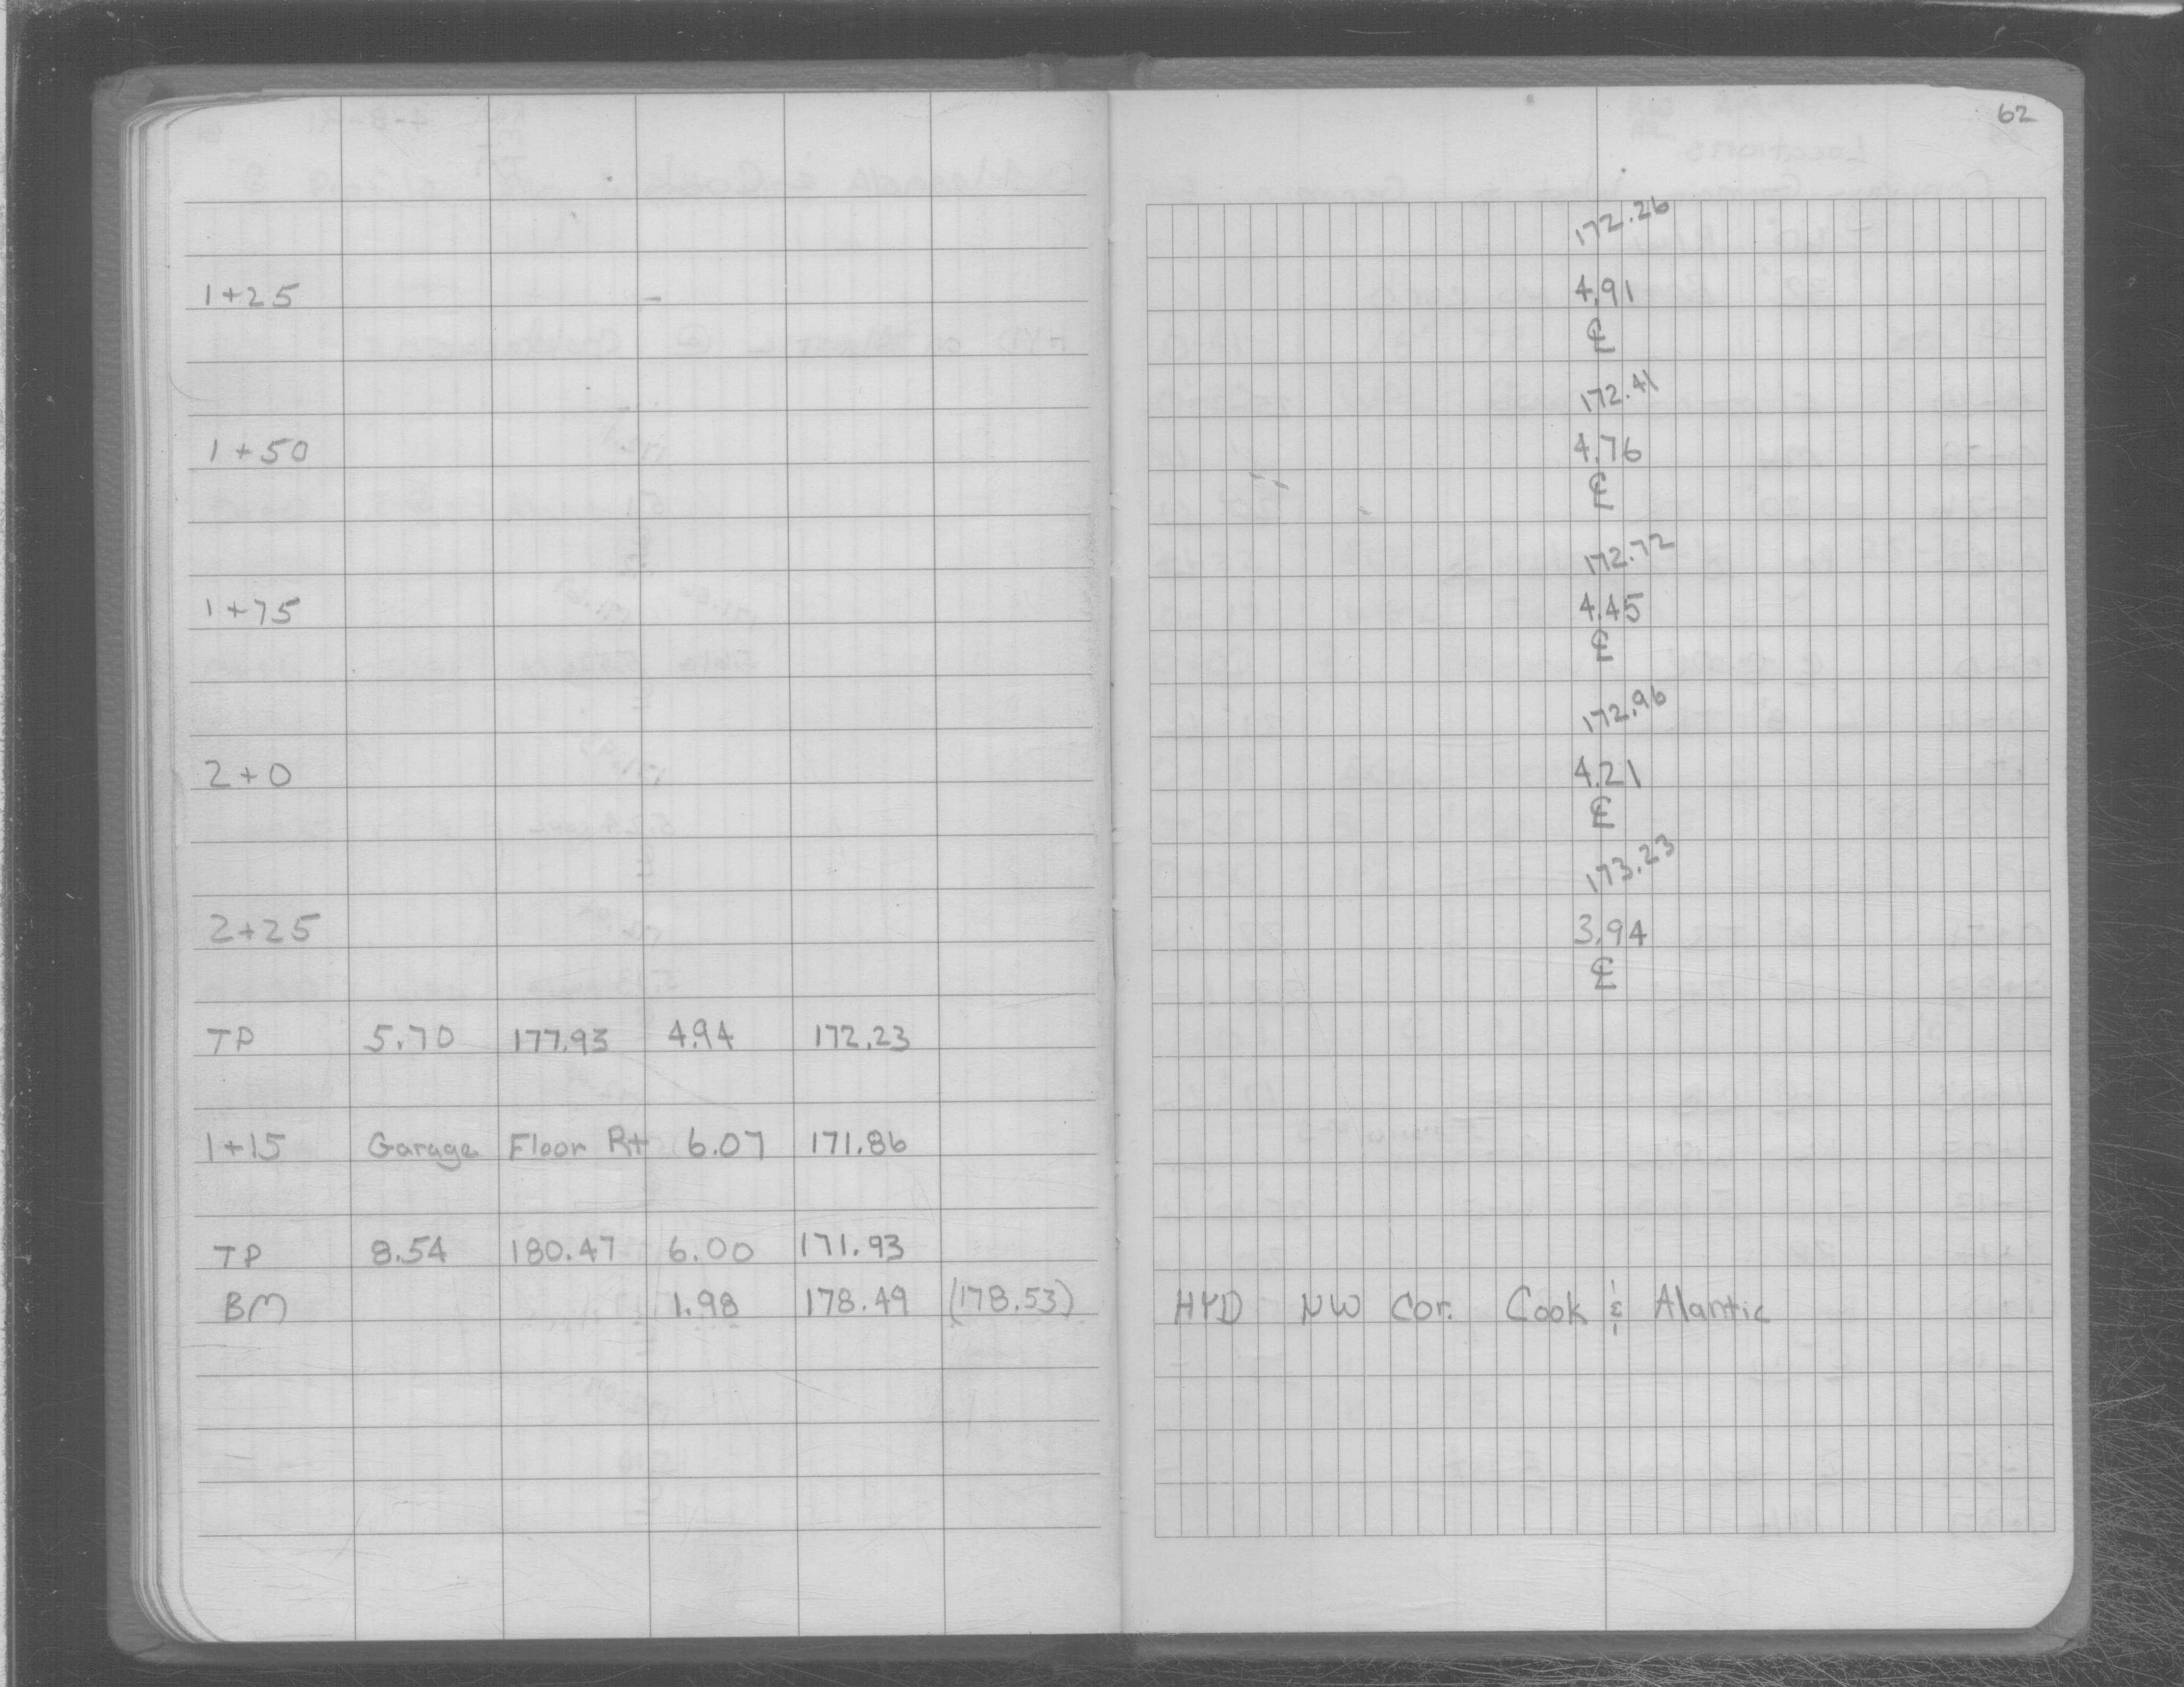 62
172.26
1+25 4.91
℄
172.41
1+50 4.76
℄
172.72
1+75 4.45
℄
172.96
2+0 4.21
℄
173.23
2+25 3.94
℄
TP 5.70 177.93 4.94 172.23
1+15 Garage Floor Rt 6.07 171.86
TP 8.54 180.47 6.00 171.93
BM 1.98 178.49 (178.53) HYD NW Cor. Cook & Alantic